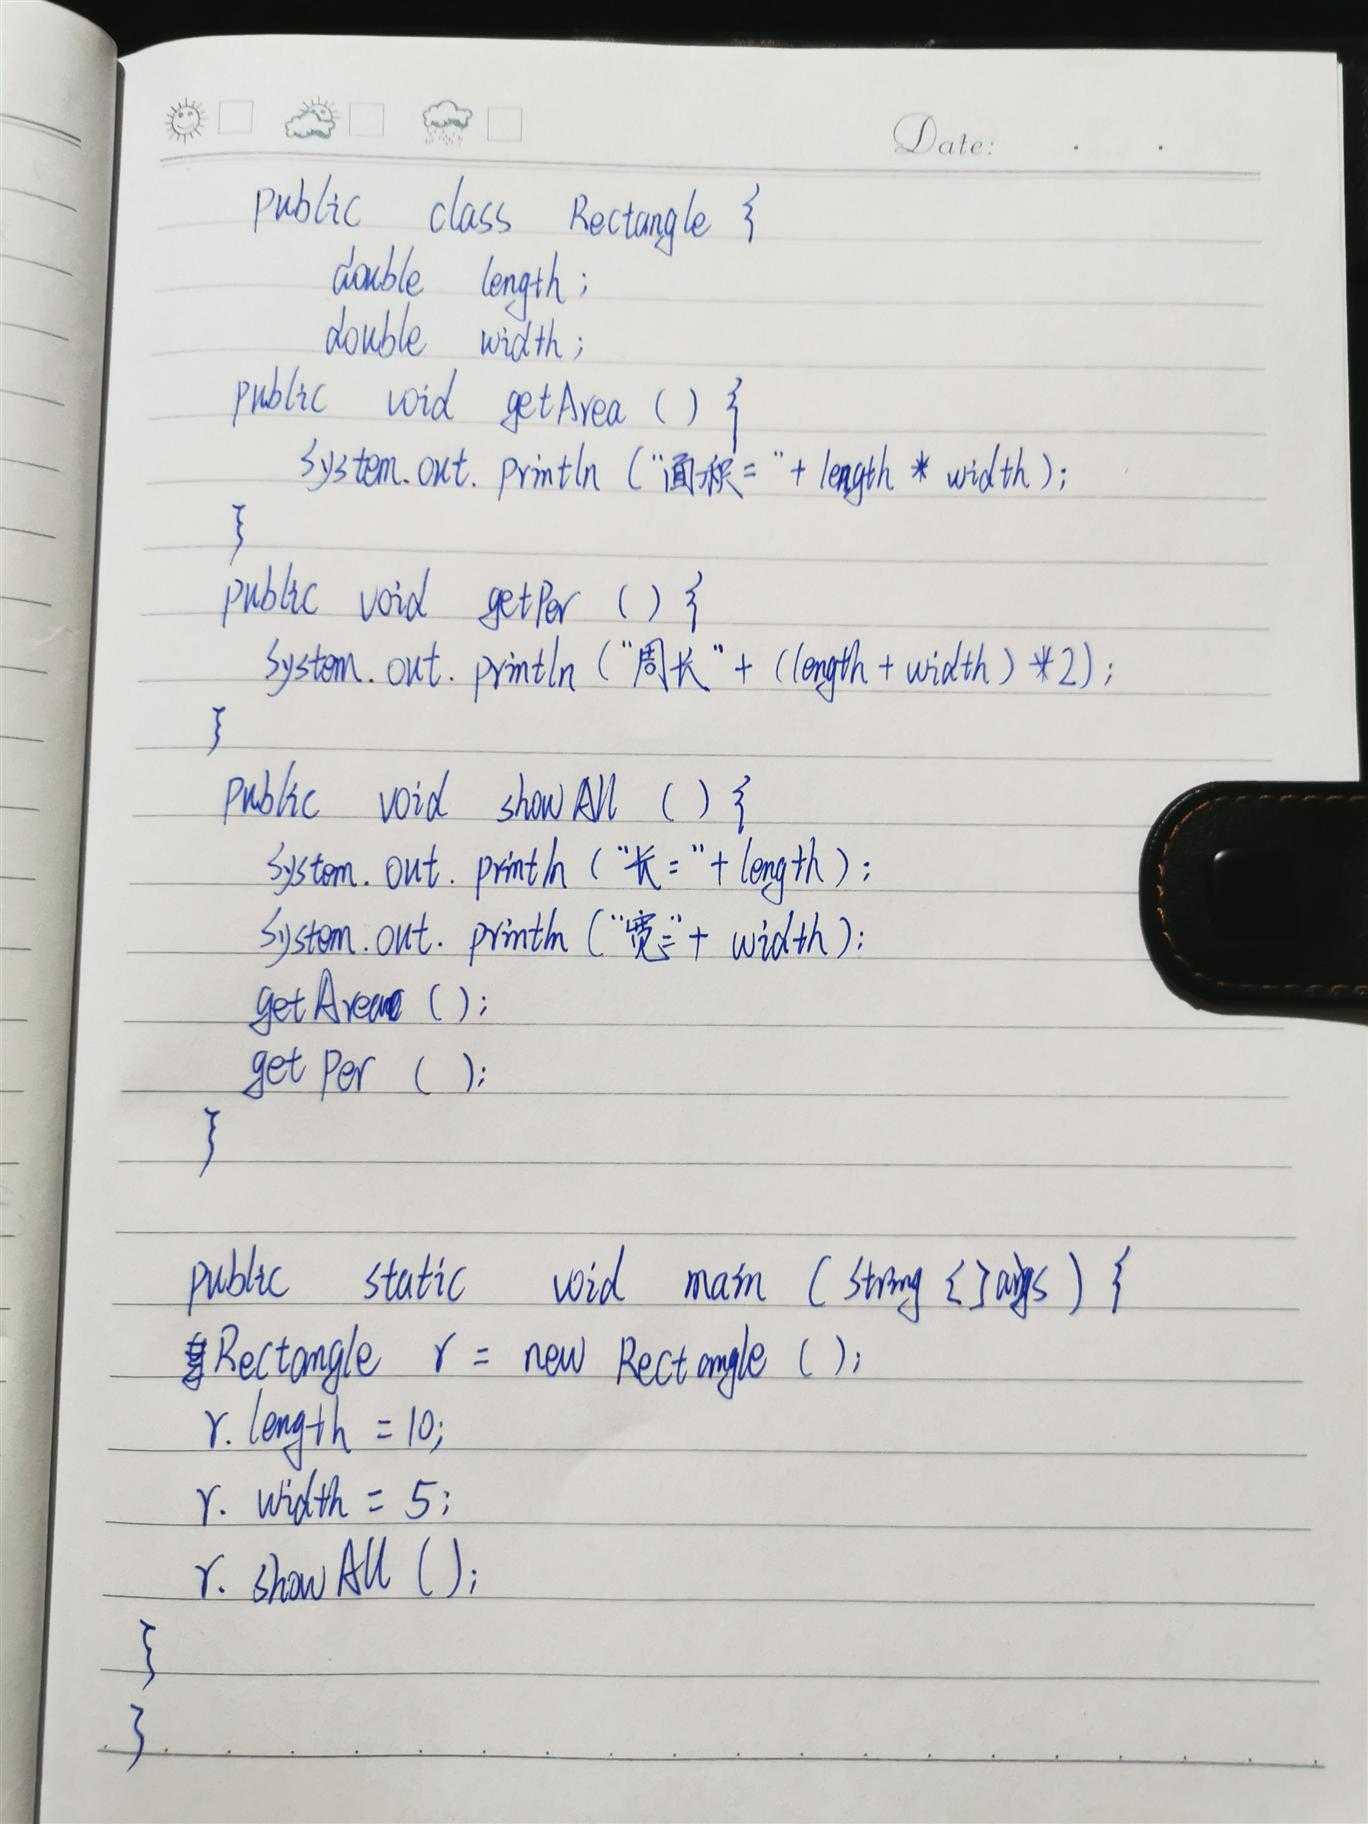 Date:
public class Rectangle {
double length;
double width;
public void getArea () {
System.out.println ("面积="+ length * width);
}
public void getPer () {
System.out.println ("周长"+ (length + width) *2);
}
public void showAll () {
System.out.println ("长="+ length);
System.out.println ("宽="+ width);
getArea ();
getPer ();
}
public static void main (String {} args) {
Rectangle r = new Rectangle ();
r. length = 10;
r. width = 5;
r. showAll ();
}
}